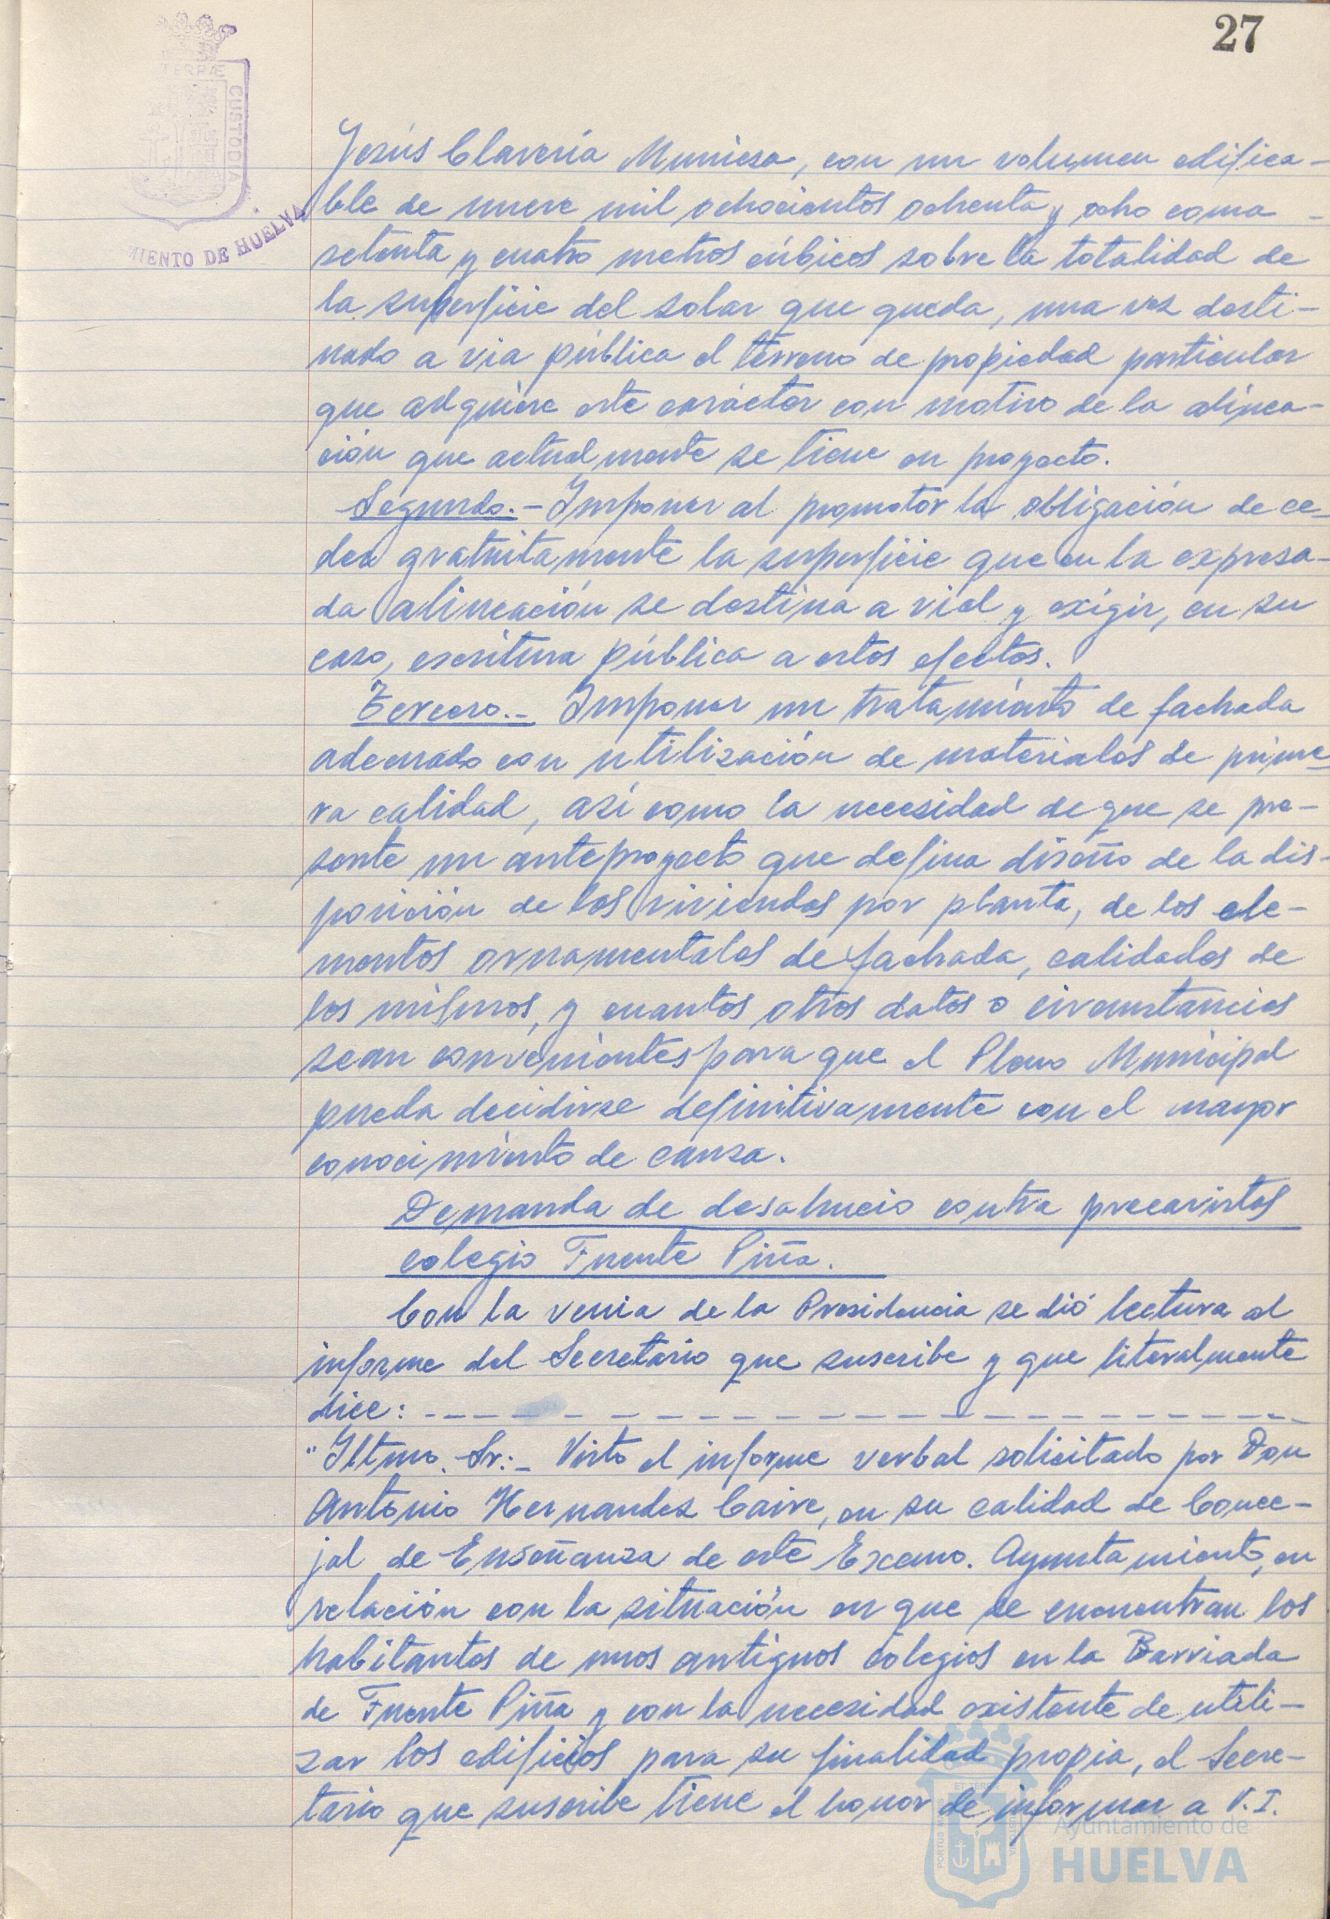 27
TERRÆ
CUSTODIA
MIENTO DE HUELVA
Jesús Clavería Muniesa, con un volumen edifica-
ble de nueve mil ochocientos ochenta y ocho coma
setenta y cuatro metros cúbicos sobre la totalidad de
la superficie del solar que queda, una vez desti-
nado a via pública el terreno de propiedad particular
que adquiere este carácter con motivo de la alinea-
ción que actualmente se tiene en proyecto.
Segundo.- Imponer al promotor la obligación de ce-
der gratuitamente la superficie que en la expresa-
da alineación se destina a vial y exigir, en su
caso, escritura pública a estos efectos.
Tercero.- Imponer un tratamiento de fachada
adecuado con utilización de materiales de prime-
ra calidad, así como la necesidad de que se pre-
sente un anteproyecto que defina diseño de la dis-
posición de las viviendas por planta, de los ele-
mentos ornamentales de fachada, calidades de
los mismos, y cuantos otros datos o circunstancias
sean convenientes para que el Pleno Municipal
pueda decidirse definitivamente con el mayor
conocimiento de causa.
Demanda de desahucio contra precaristas
colegio Fuente Piña.
Con la venia de la Presidencia se dió lectura al
informe del Secretario que suscribe y que literalmente
dice: - - - - - - - - - - - - - - - - - - - - - -
"Iltmo. Sr:- Visto el informe verbal solicitado por Don
Antonio Hernandez Caire, en su calidad de Conce-
jal de Enseñanza de este Excmo. Ayuntamiento, en
relación con la situación en que se encuentran los
habitantes de unos antiguos colegios en la Barriada
de Fuente Piña y con la necesidad existente de utili-
zar los edificios para su finalidad propia, el Secre-
tario que suscribe tiene el honor de informar a V.I.
Ayuntamiento de
HUELVA